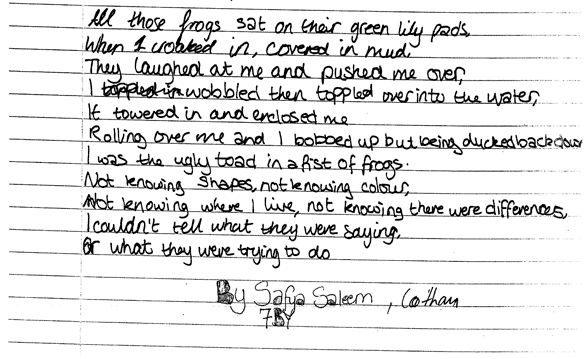 All those frogs sat on their green lily pads,
When I croaked in, covered in mud,
They laughed at me and pushed me over,
I toppled in wobbled then toppled over into the water,
It towered in and enclosed me
Rolling over me and I bobbed up but being ducked back down
I was the ugly toad in a fist of frogs.
Not knowing shapes, not knowing colour,
Not knowing where I live, not knowing there were differences,
I couldn't tell what they were saying,
Or what they were trying to do
By Safya Saleem, Cotham
7BY